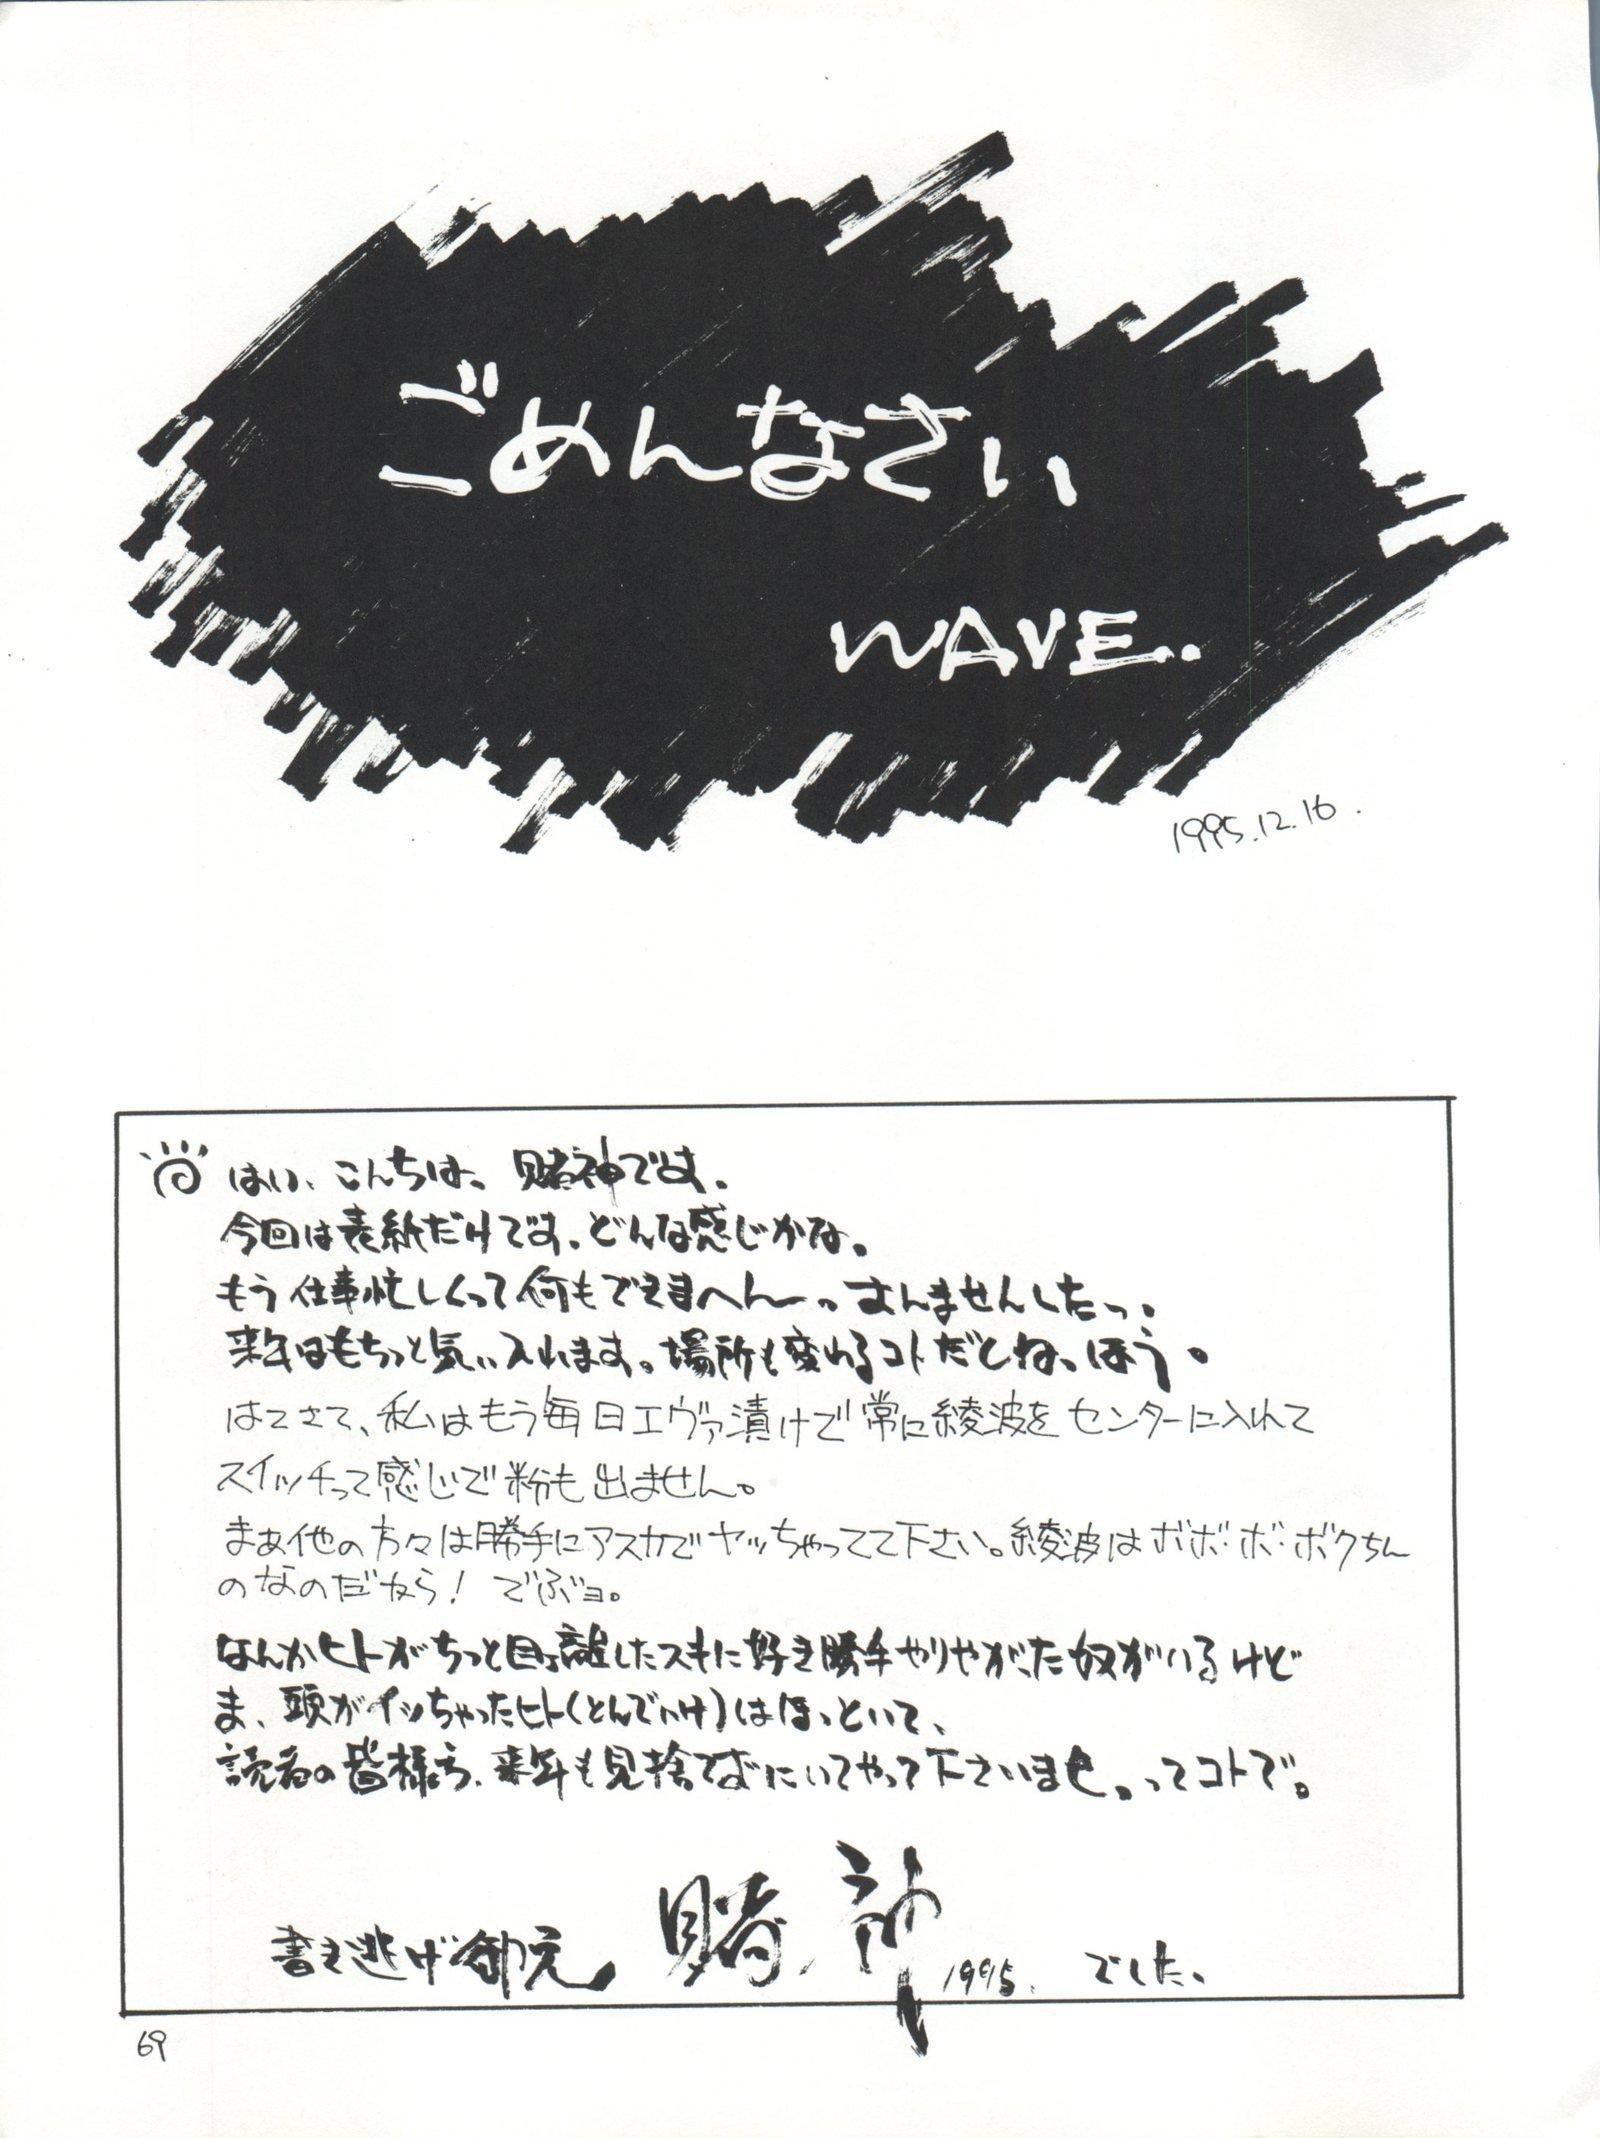 ごめんなさい
WAVE.
1995.12.16.
はい、こんちは、賭神です。
今回は表紙だけです。どんな感じかな。
もう仕事忙しくって何もできまへんー。すんませんしたっ。
来年はもちっと気ぃ入れます。場所も変わるコトだしねっ。ほう。
はてさて、私はもう毎日エヴァ漬けで常に綾波をセンターに入れて
スイッチって感じで粉も出ません。
まぁ他の方々は勝手にアスカでヤッちゃってて下さい。綾波はボボ・ボ・ボクちん
のなのだから! でぶョ。
なんかヒトがちっと目ぇ離したスキに好き勝手やりやがった奴がいるけど
ま、頭がイッちゃったヒト(とんでいけ)はほっといて、
読者の皆様方、来年も見捨てずにいてやって下さいませ。ってコトで。
書き逃げ御免
賭神
1995. でした。
69